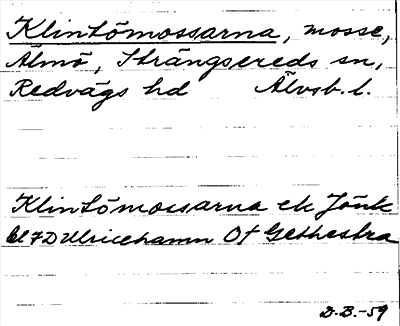 Klintömossarna, mosse,
Älmö, Strängsereds sn,
Redvägs hd Älvsb. l.
Klintömossarna ek Jönk
bl 7D Ulricehamn Of Gethestra
D.B.-59